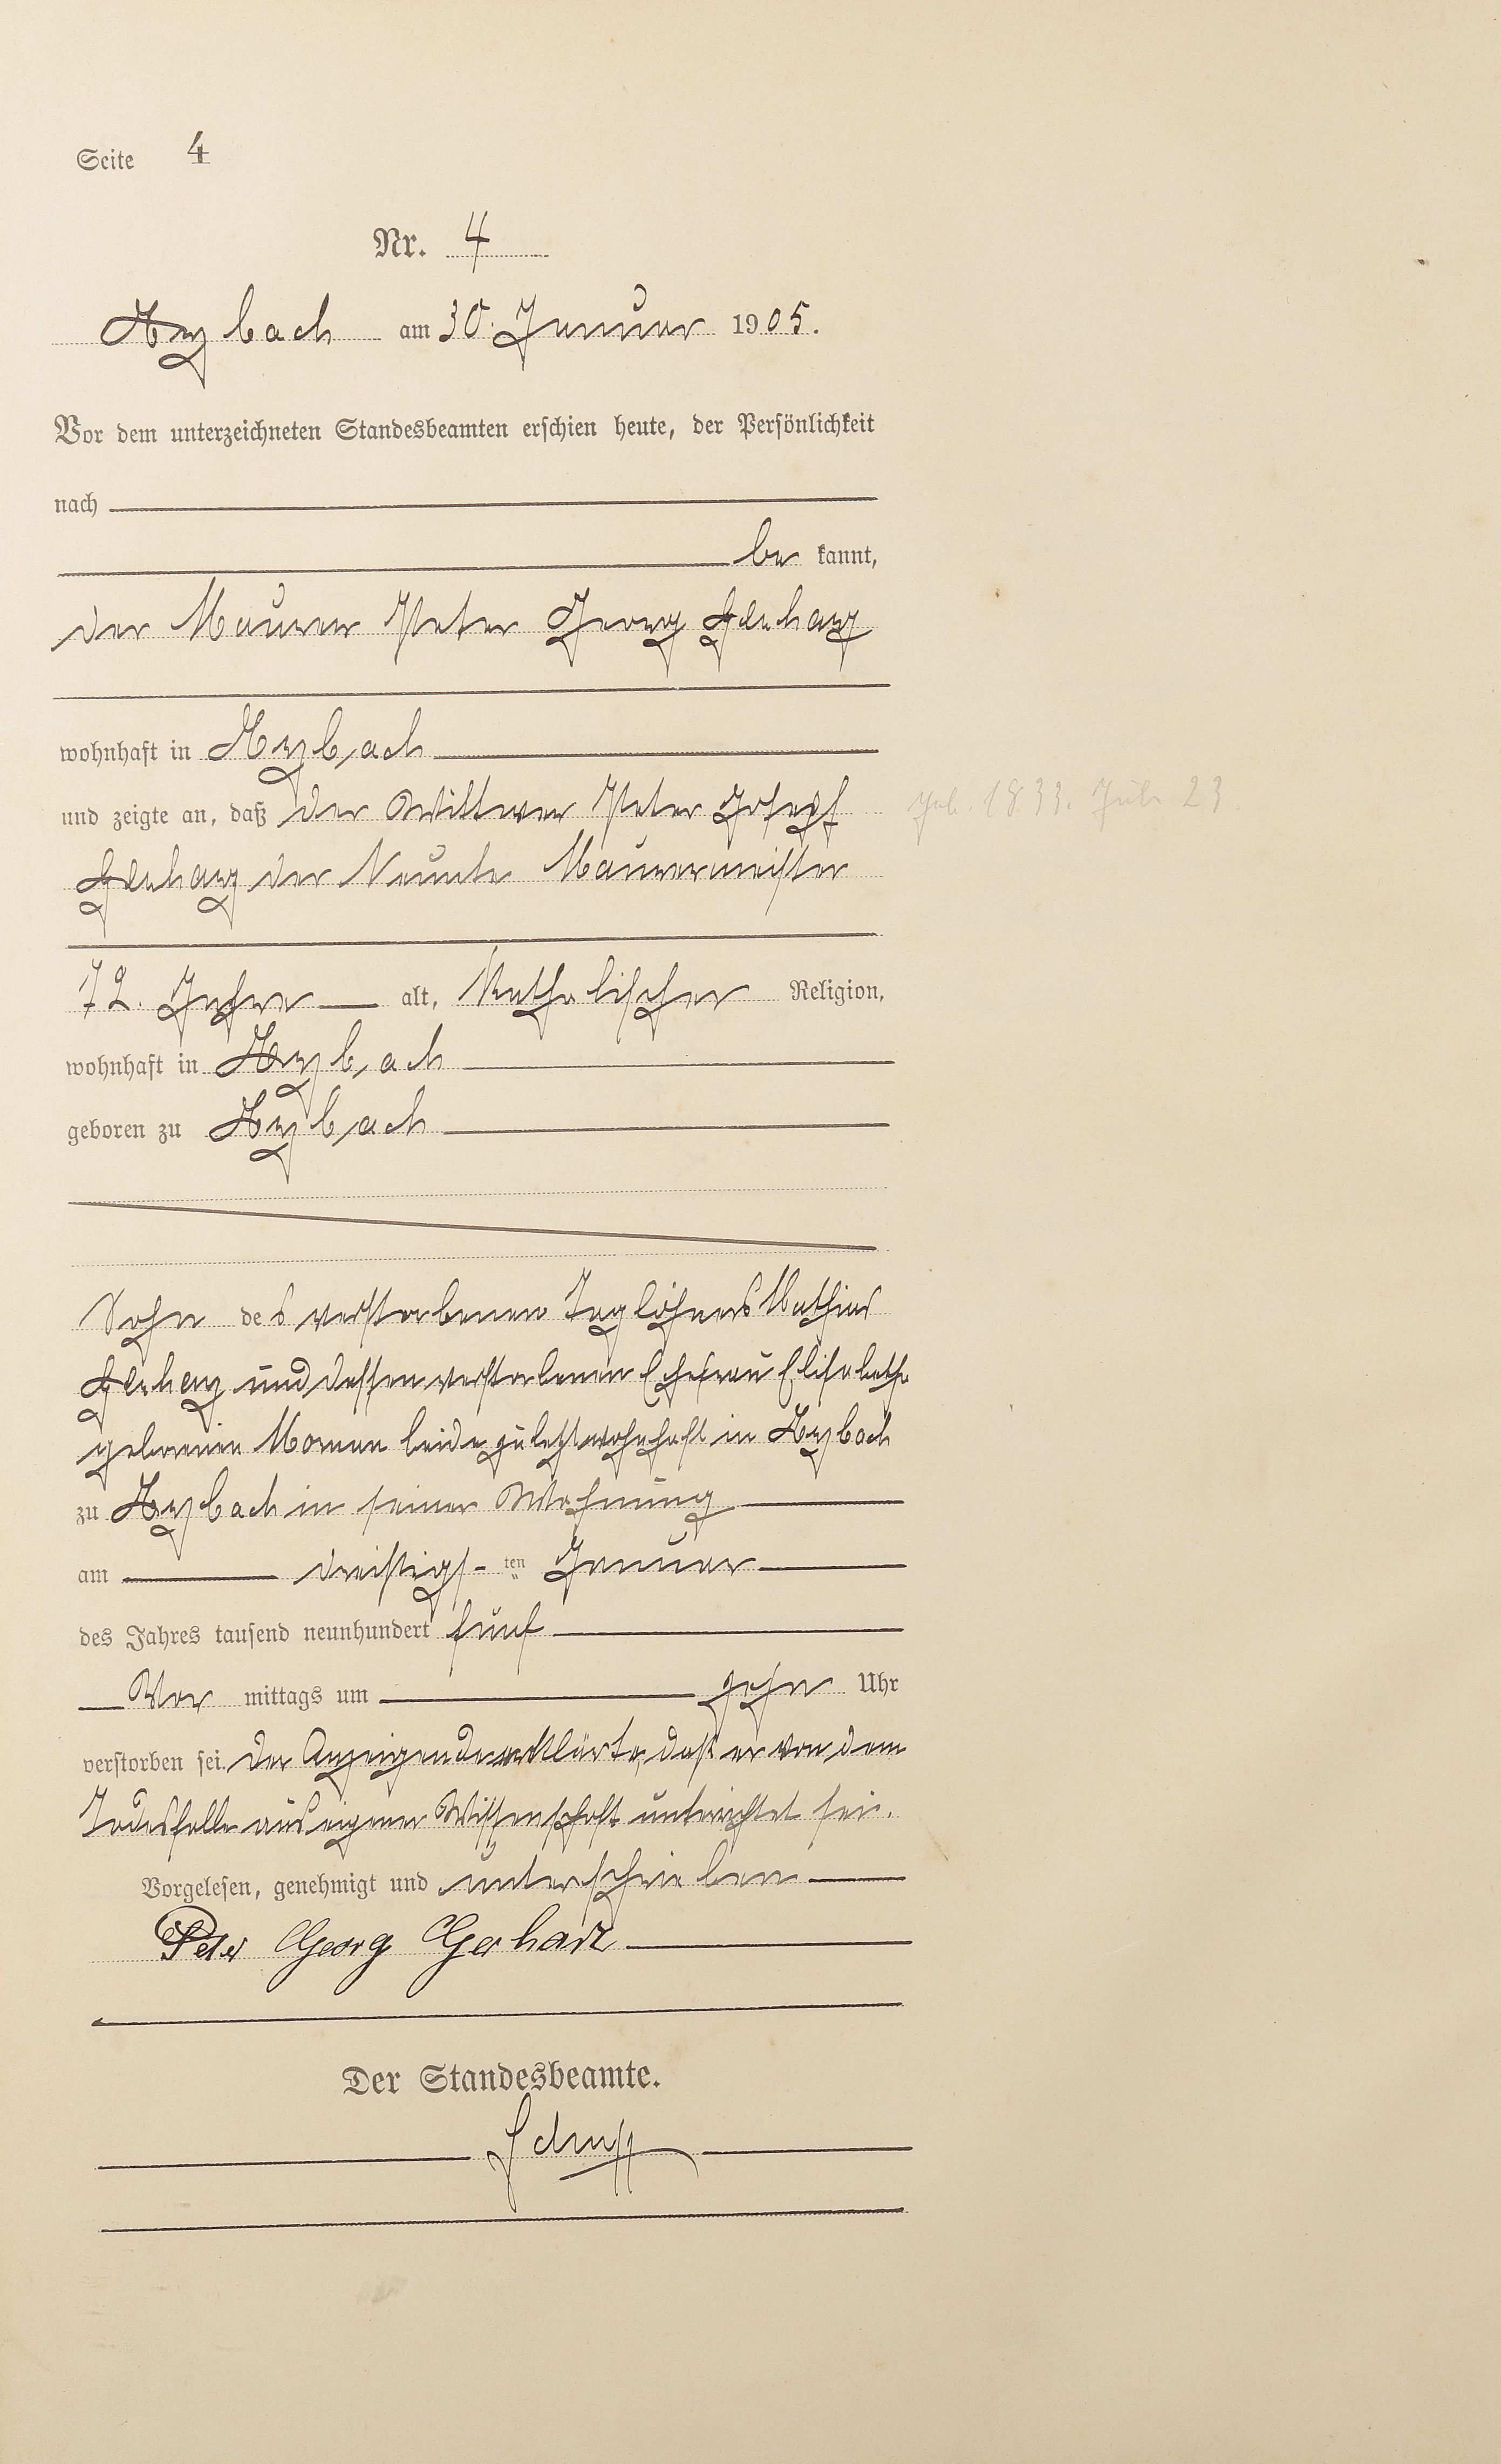 Seite 4
Nr. 4
Arzbach am 30. Januar 1905.
Vor dem unterzeichneten Standesbeamten erschien heute, der Persönlichkeit
nach
be kannt,
der Maurer Peter Georg Gerharz
wohnhaft in Arzbach
und zeigte an, daß der Wittwer Peter Josepf
Gerharz der Neunte Maurermeister
geb. 1833. Juli 23
72. Jahre alt, Katholischer Religion,
wohnhaft in Arzbach
geboren zu Arzbach
Sohn des verstorbenen Taglöhners Mathias
Gerharz und dessen verstorbenen Ehefrau Elisabeth
geborenen beide zuletzt wohnhaft in Arzbach
zu Arzbach in seiner Wohnung
am dreißigs-ten Januar
des Jahres tausend neunhundert fünf
Vor mittags um zehn Uhr
verstorben sei. Der Anzeigende erklärte, daß er von dem
Todesfalle aus eigener Wissenschaft unterrichtet sei.
Vorgelesen, genehmigt und unterschrieben
Peter Georg Gerharz
Der Standesbeamte.